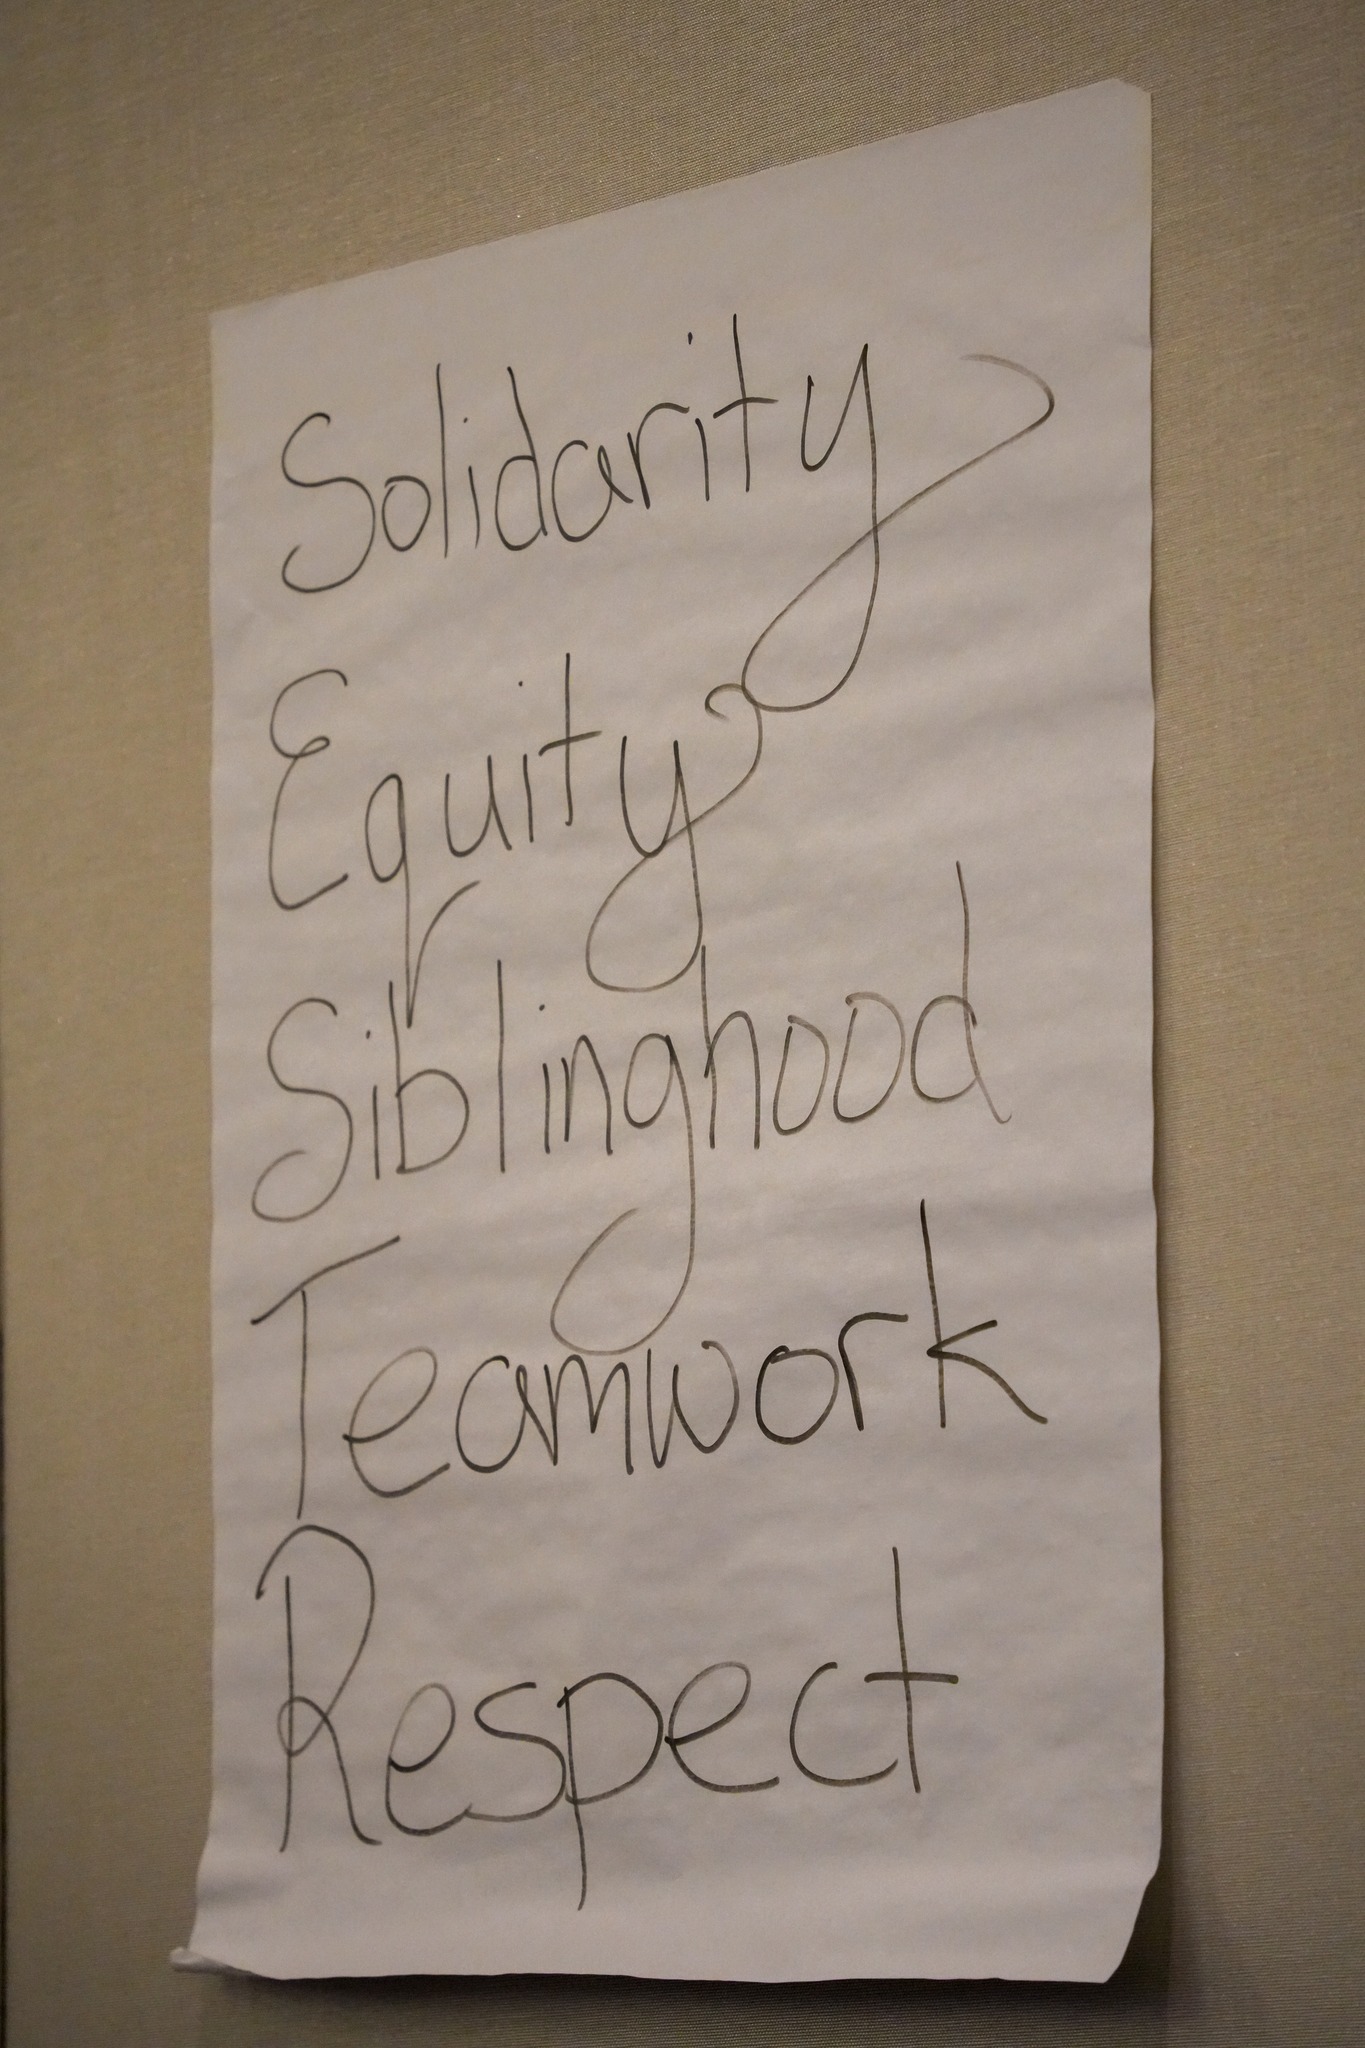 Solidarity
Equity
Siblinghood
Teamwork
Respect